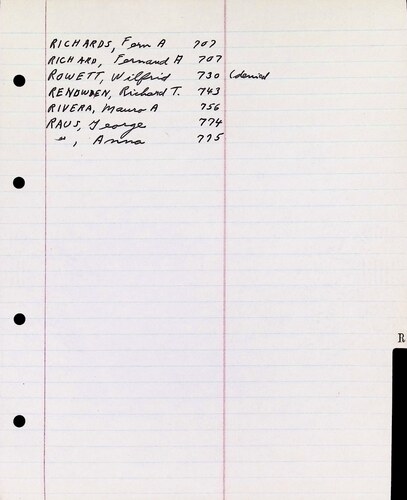 RICHARDS, Fern A 707
RICHARD, Fernand A 707
ROWETT, Wilfrid 730 (denied
RENOWDEN, Richard T. 743
RIVERA, Mauro A 756
RAUS, George 774
" , Anna 775
R